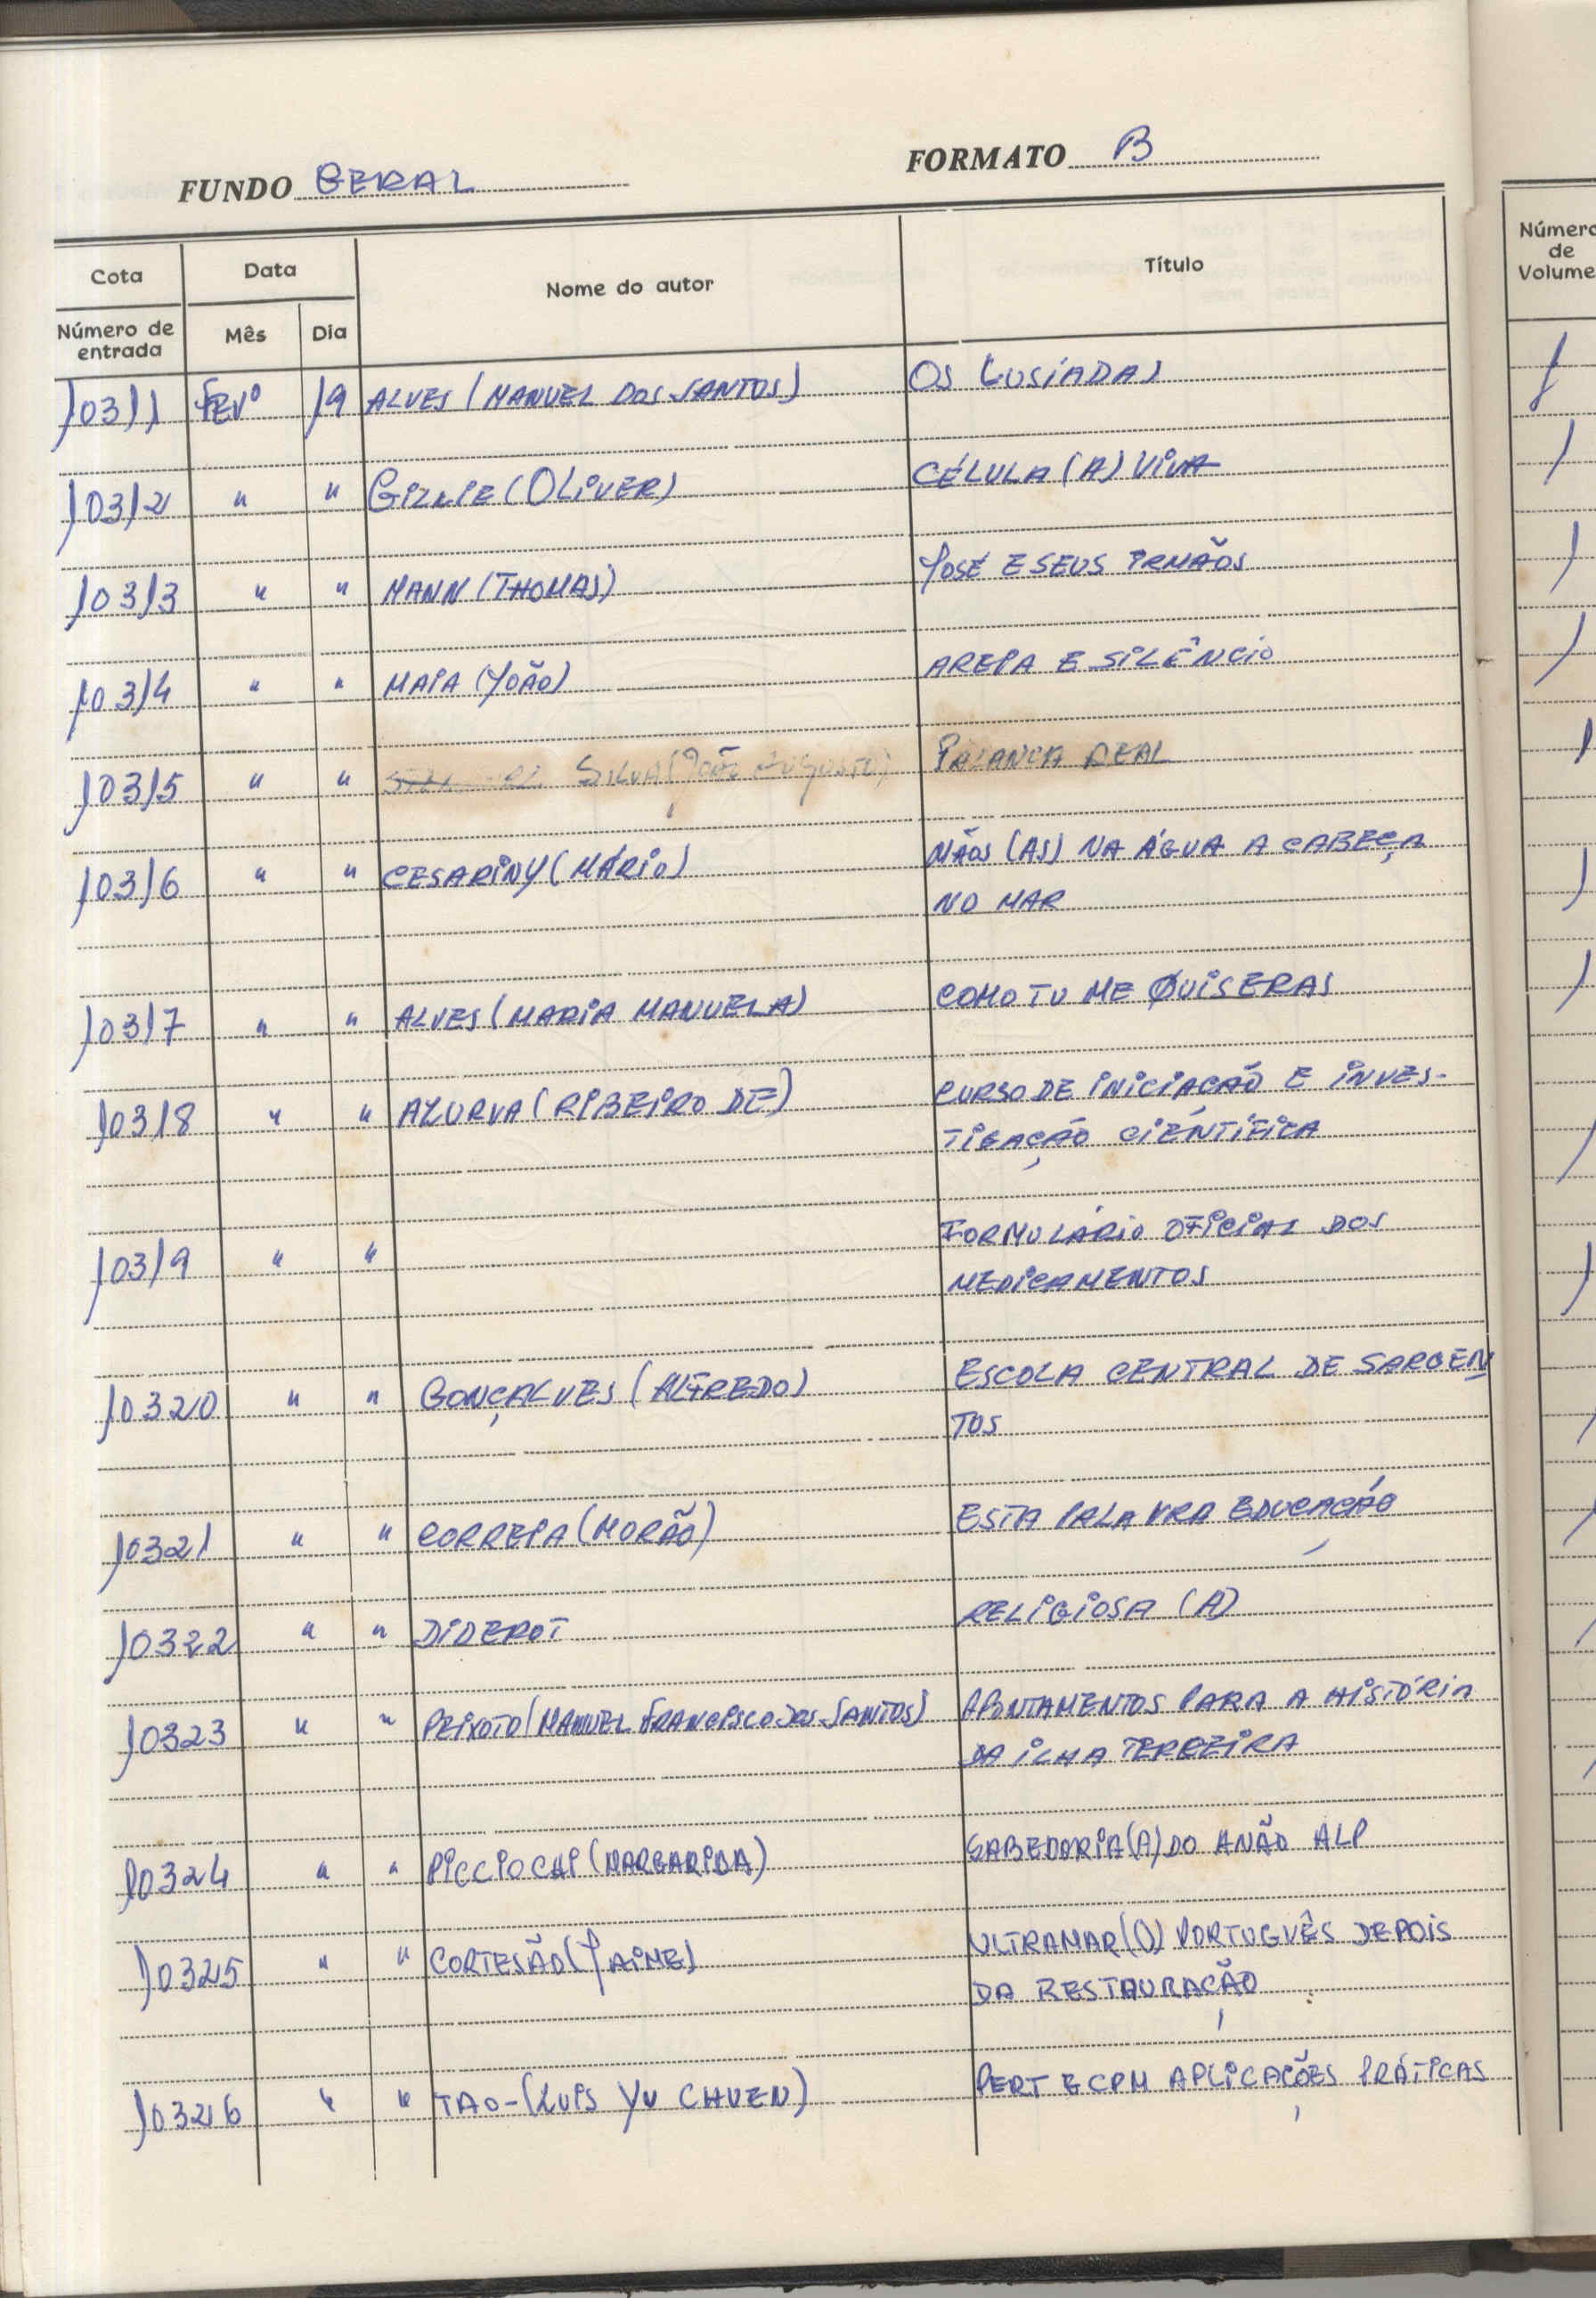 FUNDO GERAL FORMATO B
Cota Data Nome do autor Título Número de Volume
Número de entrada Mês Dia
10311 FEVº 19 ALVES (MANUEL DOS SANTOS) OS LUSÍADAS 1
10312 " " GILLIE (OLIVER) CÉLULA (A) VIVA 1
10313 " " MANN (THOMAS) JOSÉ E SEUS IRMÃOS 1
10314 " " MAIA (JOÃO) AREIA E SILÊNCIO 1
10315 " " SILVA (JOÃO AUGUSTO) PALANCA REAL 1
10316 " " CESARINY (MÁRIO) MÃOS (AS) NA ÁGUA A CABEÇA 1
NO MAR
10317 " " ALVES (MARIA MANUELA) COMO TU ME QUISERAS 1
10318 " " AZURVA (RIBEIRO DE) CURSO DE INICIAÇÃO E INVES- 1
TIGAÇÃO CIENTÍFICA
10319 " " FORMULÁRIO OFICIAL DOS 1
MEDICAMENTOS
10320 " " GONÇALVES (ALFREDO) ESCOLA CENTRAL DE SARGEN 1
TOS
10321 " " CORREIA (MORÃO) ESTA PALAVRA EDUCAÇÃO 1
10322 " " DIDEROT RELIGIOSA (A) 1
10323 " " PEIXOTO (MANUEL FRANCISCO DOS SANTOS) APONTAMENTOS PARA A HISTÓRIA 1
DA ILHA TERCEIRA
10324 " " PICCIOCHI (MARGARIDA) SABEDORIA (A) DO ANÃO ALP
10325 " " CORTESÃO (JAIME) ULTRAMAR (O) PORTUGUÊS DEPOIS
DA RESTAURAÇÃO
10326 " " TAO-(LUIS YU CHUEN) PERT E CPM APLICAÇÕES PRÁTICAS